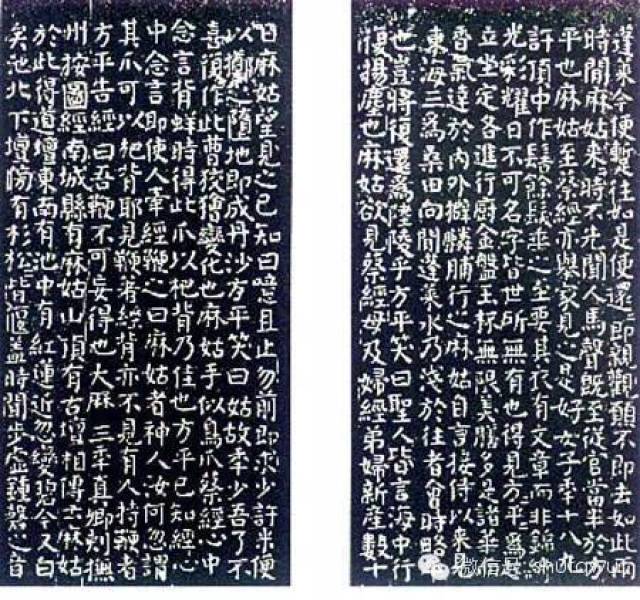 蓬莱今便蹔往如是便還即親觀願不即去如此兩
時間麻姑来時不先聞人馬聲既至從官當半於方
平也麻姑至蔡經亦舉家見之是好女子年十八九
許頂中作髻餘髮垂之至要其衣有文章而非錦綺
光彩耀日不可名字皆世所無有也得見方平為起
立坐定各進行廚金盤玉杯無限美膳多是諸華
香氣達於内外擗麟脯行之麻姑自言接待以来見
東海三為桑田向間蓬莱水乃淺於往者會時略
也豈將復還為陸陵乎方平笑曰聖人皆言海中行
復揚塵也麻姑欲見蔡經母及婦經弟婦新産數十
日麻姑望見之已知曰噫且止勿前即求少許米便
以擲之墮地即成丹沙方平笑曰姑故年少吾了不
喜復作此曹狡獪變化也麻姑手似鳥爪蔡經心中
念言背蛘時得此爪以杷背乃佳也方平已知經心
中念言即使人牽經鞭之曰麻姑者神人汝何忽謂
其爪可以杷背耶見鞭著經背亦不見有人持鞭者
方平告經曰吾鞭不可妄得也大𠪱三年真卿刾撫
州按圖經南城縣有麻姑山頂有古壇相傳云麻姑
於此得道壇東南有池中有紅蓮近忽變碧今又白
矣池北下壇傍有杉松皆偃蓋時聞步虛鍾磬之音
微信